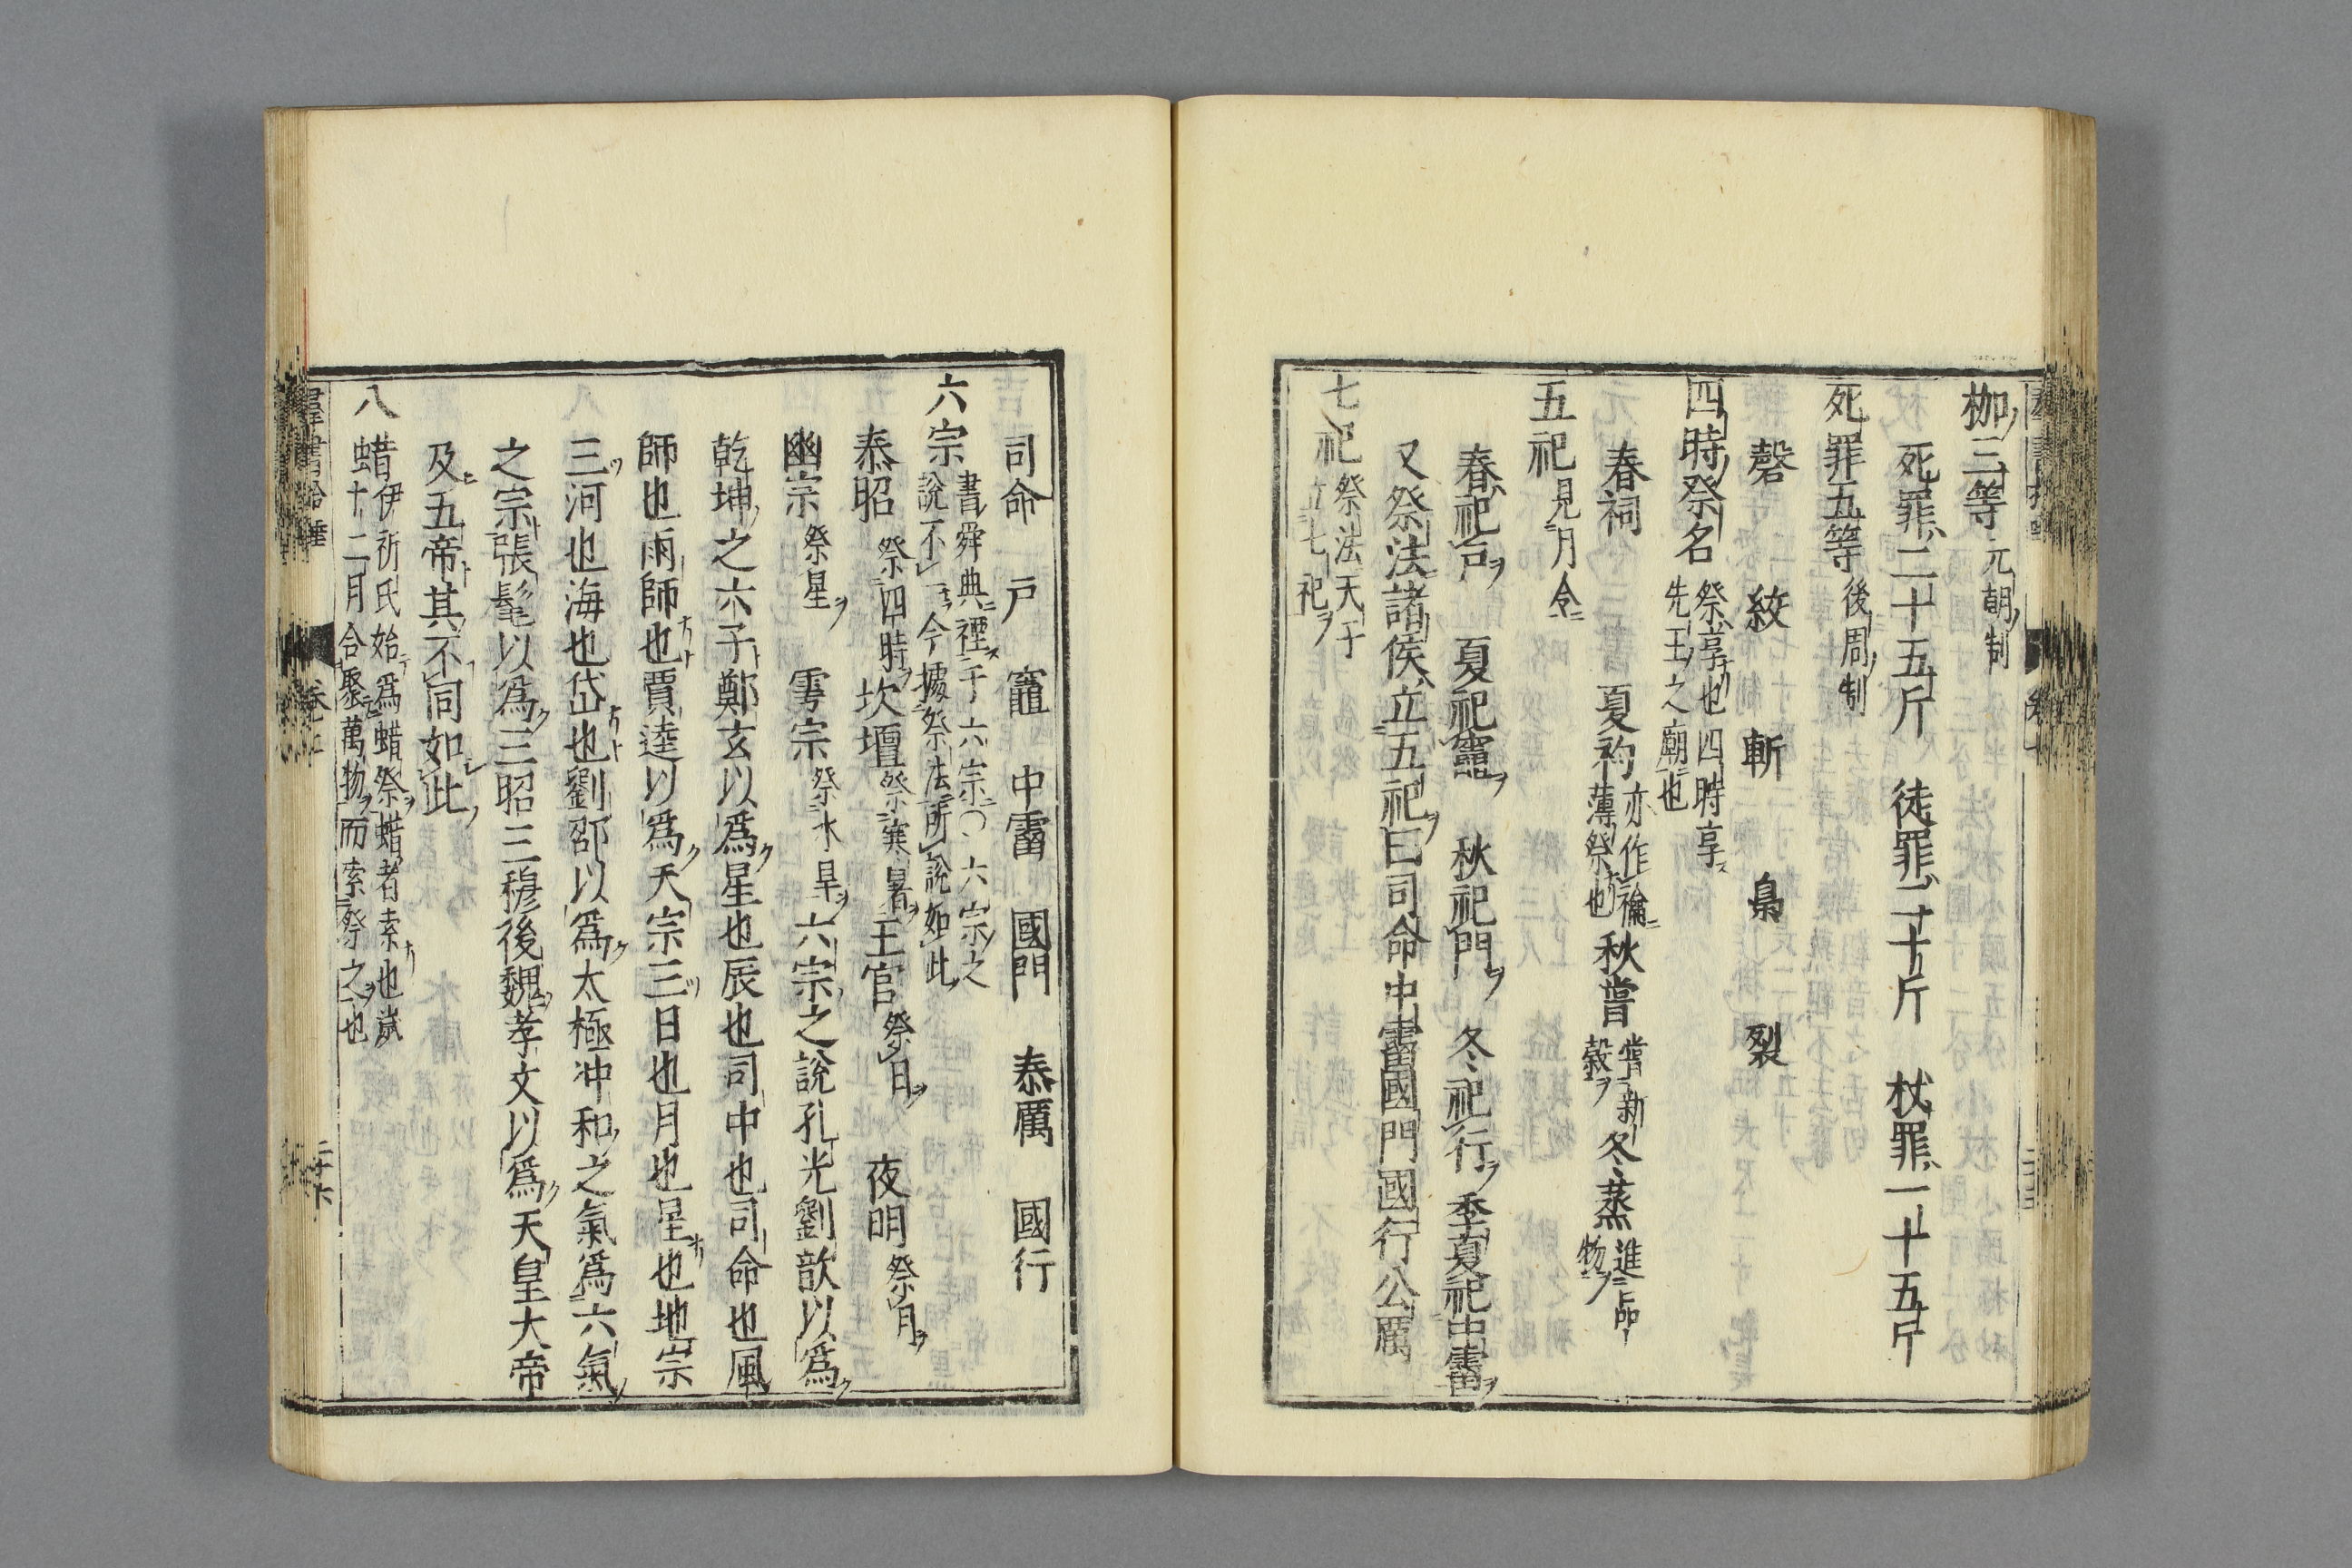 枷三等 元朝制
死罪二十五斤 徒罪二十斤 杖罪一十五斤
死罪五等 後周制
磬 絞 斬 梟 裂
四時祭名 祭享也四時享先王之廟也
春祠 夏礿 亦作禴薄祭也 秋嘗 嘗新穀 冬蒸 進品物
五祀 見月令
春祀戸 夏祀竈 秋祀門 冬祀行 季夏祀中霤
又祭法諸侯立五祀曰司命中霤國門國行公厲
七祀 祭法天子立七祀
司命 戸 竈 中霤 國門 泰厲 國行
六宗 書舜典禋于六宗〇六宗之說不一今據祭法所說如此
泰昭 祭四時 坎壇 祭寒暑 王宮 祭日 夜明 祭月
幽宗 祭星 雩宗 祭水旱 六宗之說孔光劉歆以爲
乾坤之六子鄭玄以爲星也辰也司中也司命也風
師也雨師也賈逵以爲天宗三日也月也星也地宗
三河也海也岱也劉邵以爲太極冲和之氣爲六氣
之宗張髦以爲三昭三穆後魏孝文以爲天皇大帝
及五帝其不同如此
八蜡 伊祈氏始爲蜡祭蜡者索也歲十二月合聚萬物而索祭之也
羣書拾唾